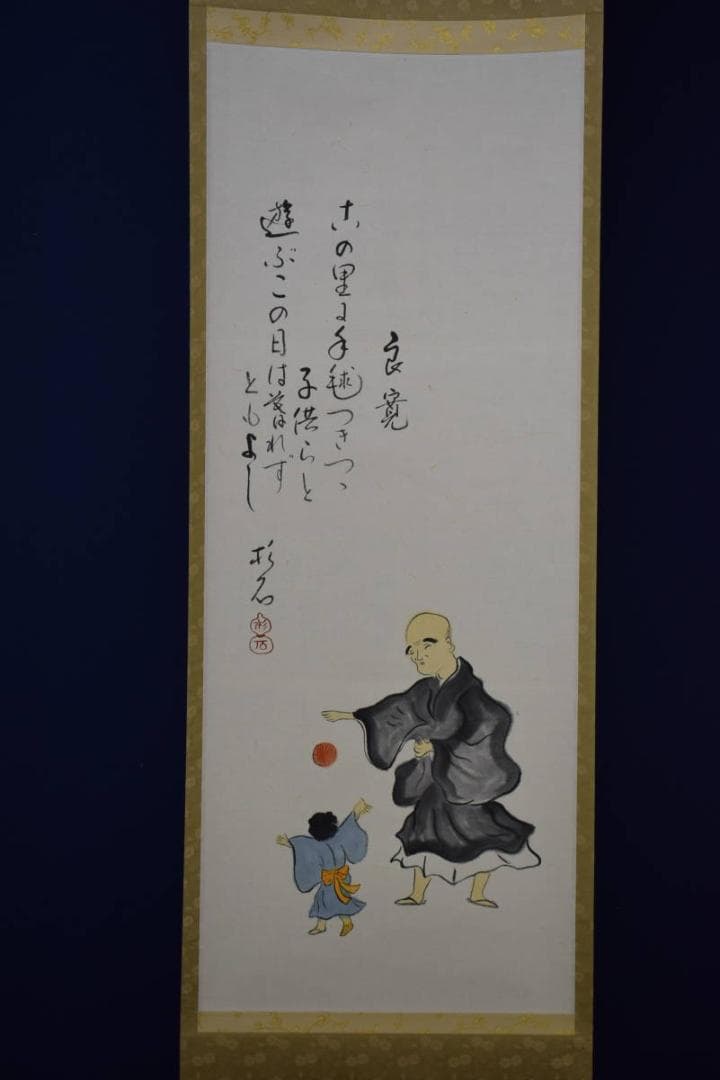 良寛
この里に手毬つきつゝ
子供らと
遊ぶこの日は暮れず
ともよし
杉石
杉石